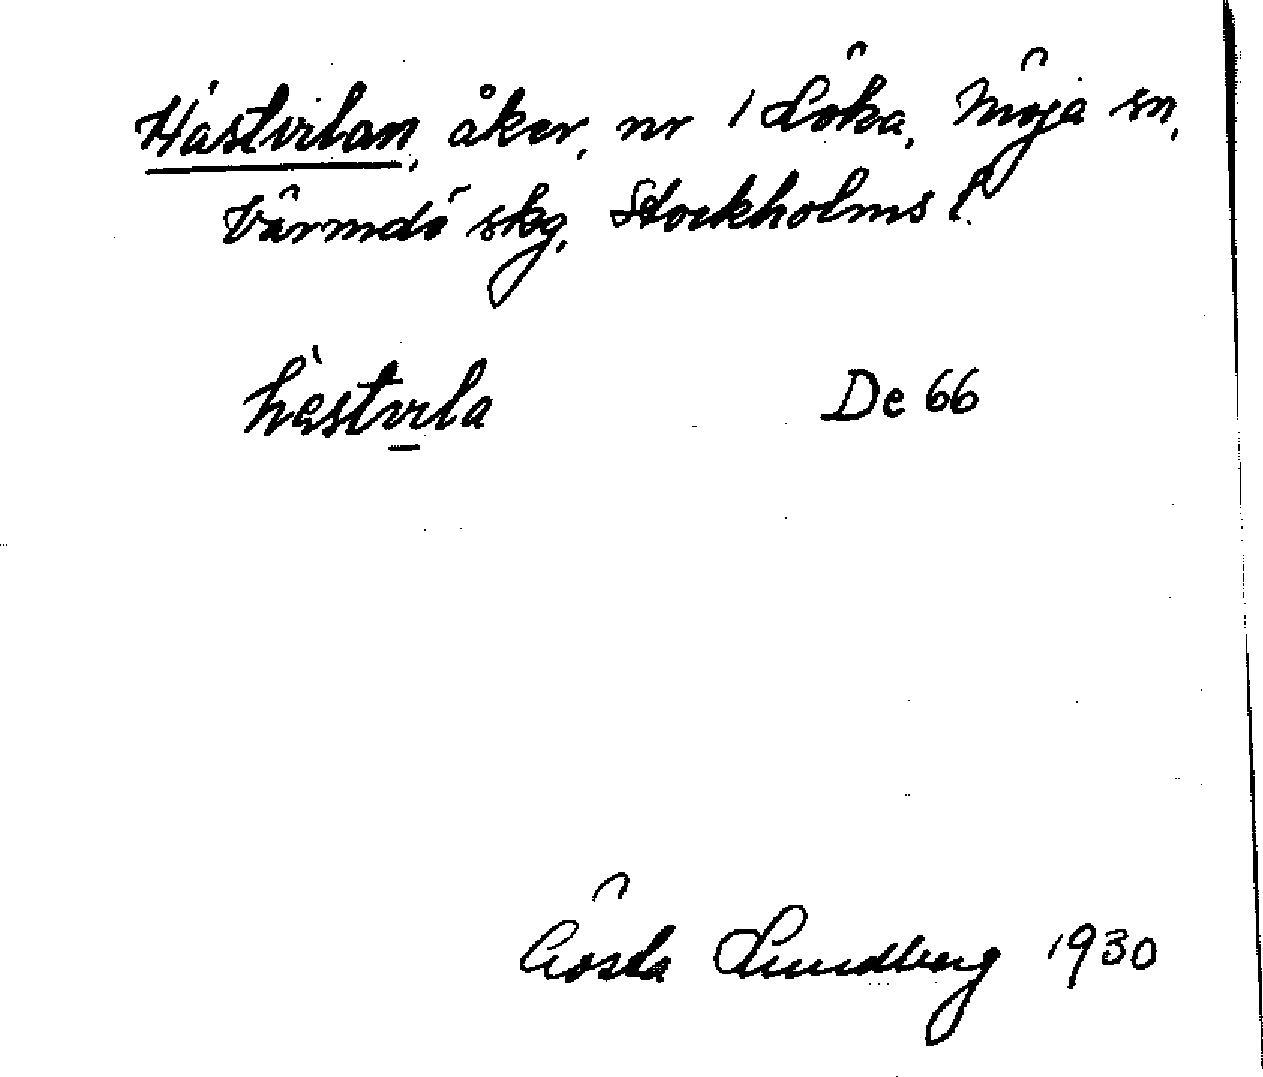 Hästvilan, åker, nr 1 Löka, Möja sn,
Värmdö skg, Stockholms l.
hästvila De 66
Gösta Lundberg 1930